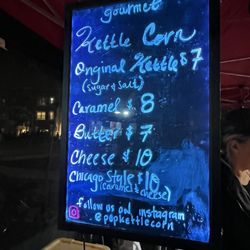 gourmet
Kettle Corn
Original Kettle $7
(sugar & salt)
Caramel $ 8
Butter $ 7
Cheese $ 10
Chicago Style $ 10
(caramel & cheese)
follow us on instagram
@popkettlecorn